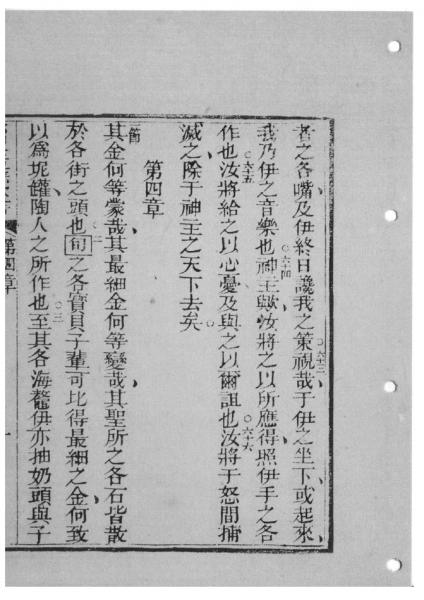 者之各嘴及伊終日讒我之策視哉于伊之坐下或起來、
我乃伊之音樂也神主歟汝將之以所應得照伊手之各
作也汝將給之以心憂及與之以爾詛也汝將于怒間捕
滅之除于神主之天下去矣
第四章
節其金何等蒙哉其最細金何等變哉其聖所之各石皆散
於各街之頭也旬之各寶貝子輩可比得最細之金何致
以爲坭罐陶人之所作也至其各海鰲伊亦抽奶頭與子
第四章